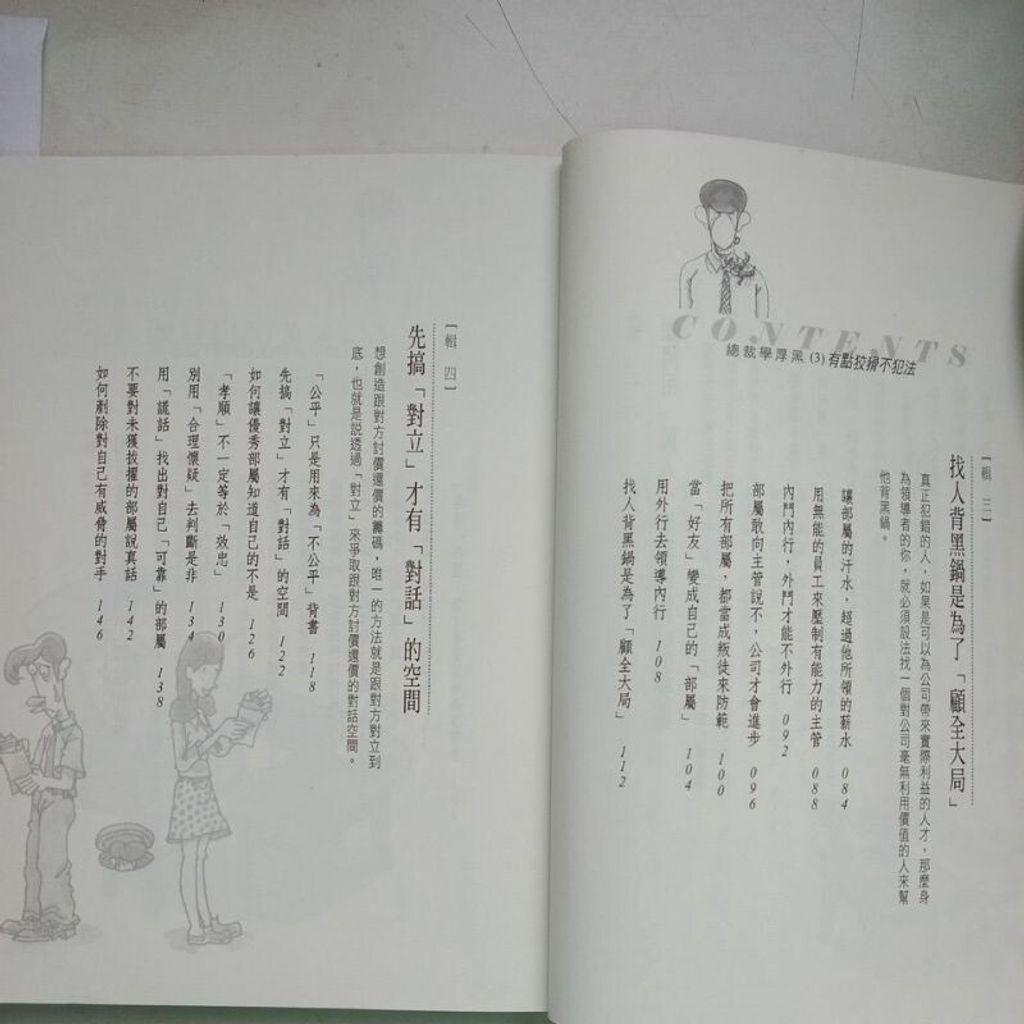 CONTENTS
總裁學厚黑(3)有點狡猾不犯法
［輯 三］
找人背黑鍋是為了「顧全大局」
真正犯錯的人，如果是可以為公司帶來實際利益的人才，那麼身
為領導者的你，就必須設法找一個對公司毫無利用價值的人來幫
他背黑鍋。
讓部屬的汗水，超過他所領的薪水 084
用無能的員工來壓制有能力的主管 088
內鬥內行，外鬥才能不外行 092
部屬敢向主管說不，公司才會進步 096
把所有部屬，都當成叛徒來防範 100
當「好友」變成自己的「部屬」 104
用外行去領導內行 108
找人背黑鍋是為了「顧全大局」 112
［輯 四］
先搞「對立」才有「對話」的空間
想創造跟對方討價還價的籌碼，唯一的方法就是跟對方對立到
底，也就是說透過「對立」來爭取跟對方討價還價的對話空間。
「公平」只是用來為「不公平」背書 118
先搞「對立」才有「對話」的空間 122
如何讓優秀部屬知道自己的不是 126
「孝順」不一定等於「效忠」 130
別用「合理懷疑」去判斷是非 134
用「謊話」找出對自己「可靠」的部屬 138
不要對未獲拔擢的部屬說真話 142
如何剷除對自己有威脅的對手 146